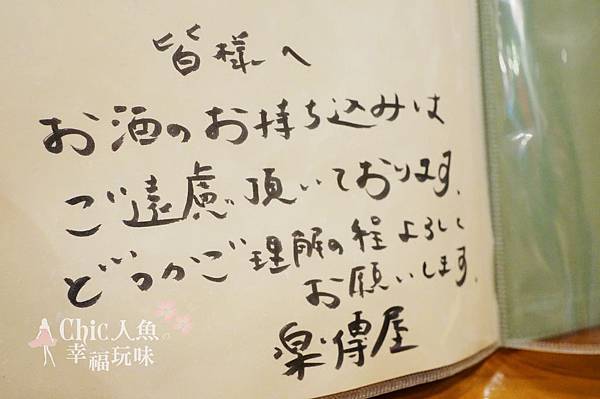 皆様へ
お酒のお持ち込みは
ご遠慮頂いております。
どうかご理解の程よろしく
お願いします。
楽傳屋
Chic人魚の
幸福玩味